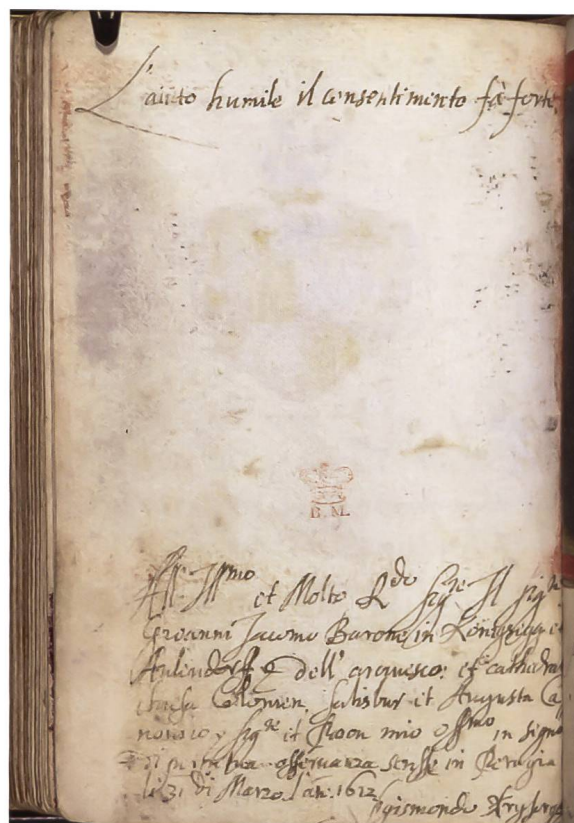 L'aiuto humile il consentimento fà forte
B. M.
All' Ill^mo et Molto R^do Sig^re Il Sig^re
Giovanni Jacomo Barone in Königsegg et
Aulendorff dell' et cathedral
Colonien, Salisbur et Augusta Ca
nonico, Sig^re et mio oss^mo in segno
di osservanza scrisse in Perugia
li 31 di Marzo l'an: 1612
Sgismondo